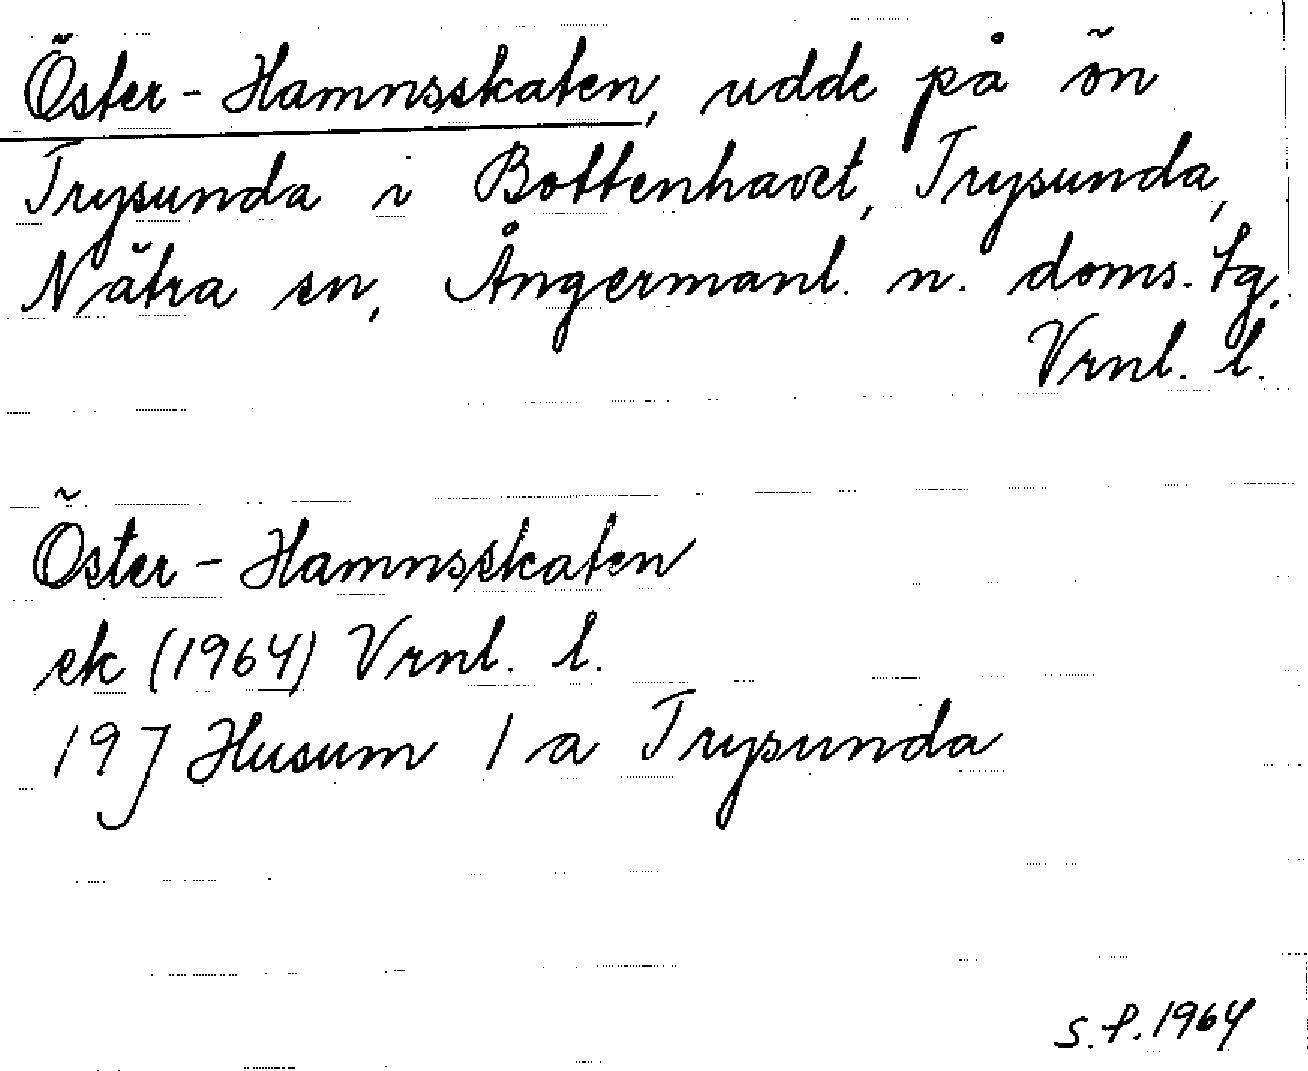 Öster-Hamnsskaten, udde på ön
Trysunda i Bottenhavet, Trysunda,
Nätra sn, Ångermanl. n. doms. tg,
Vrnl. l.
Öster-Hamnsskaten
ek (1964) Vrnl. l.
19J Husum 1 a Trysunda
S.P. 1964